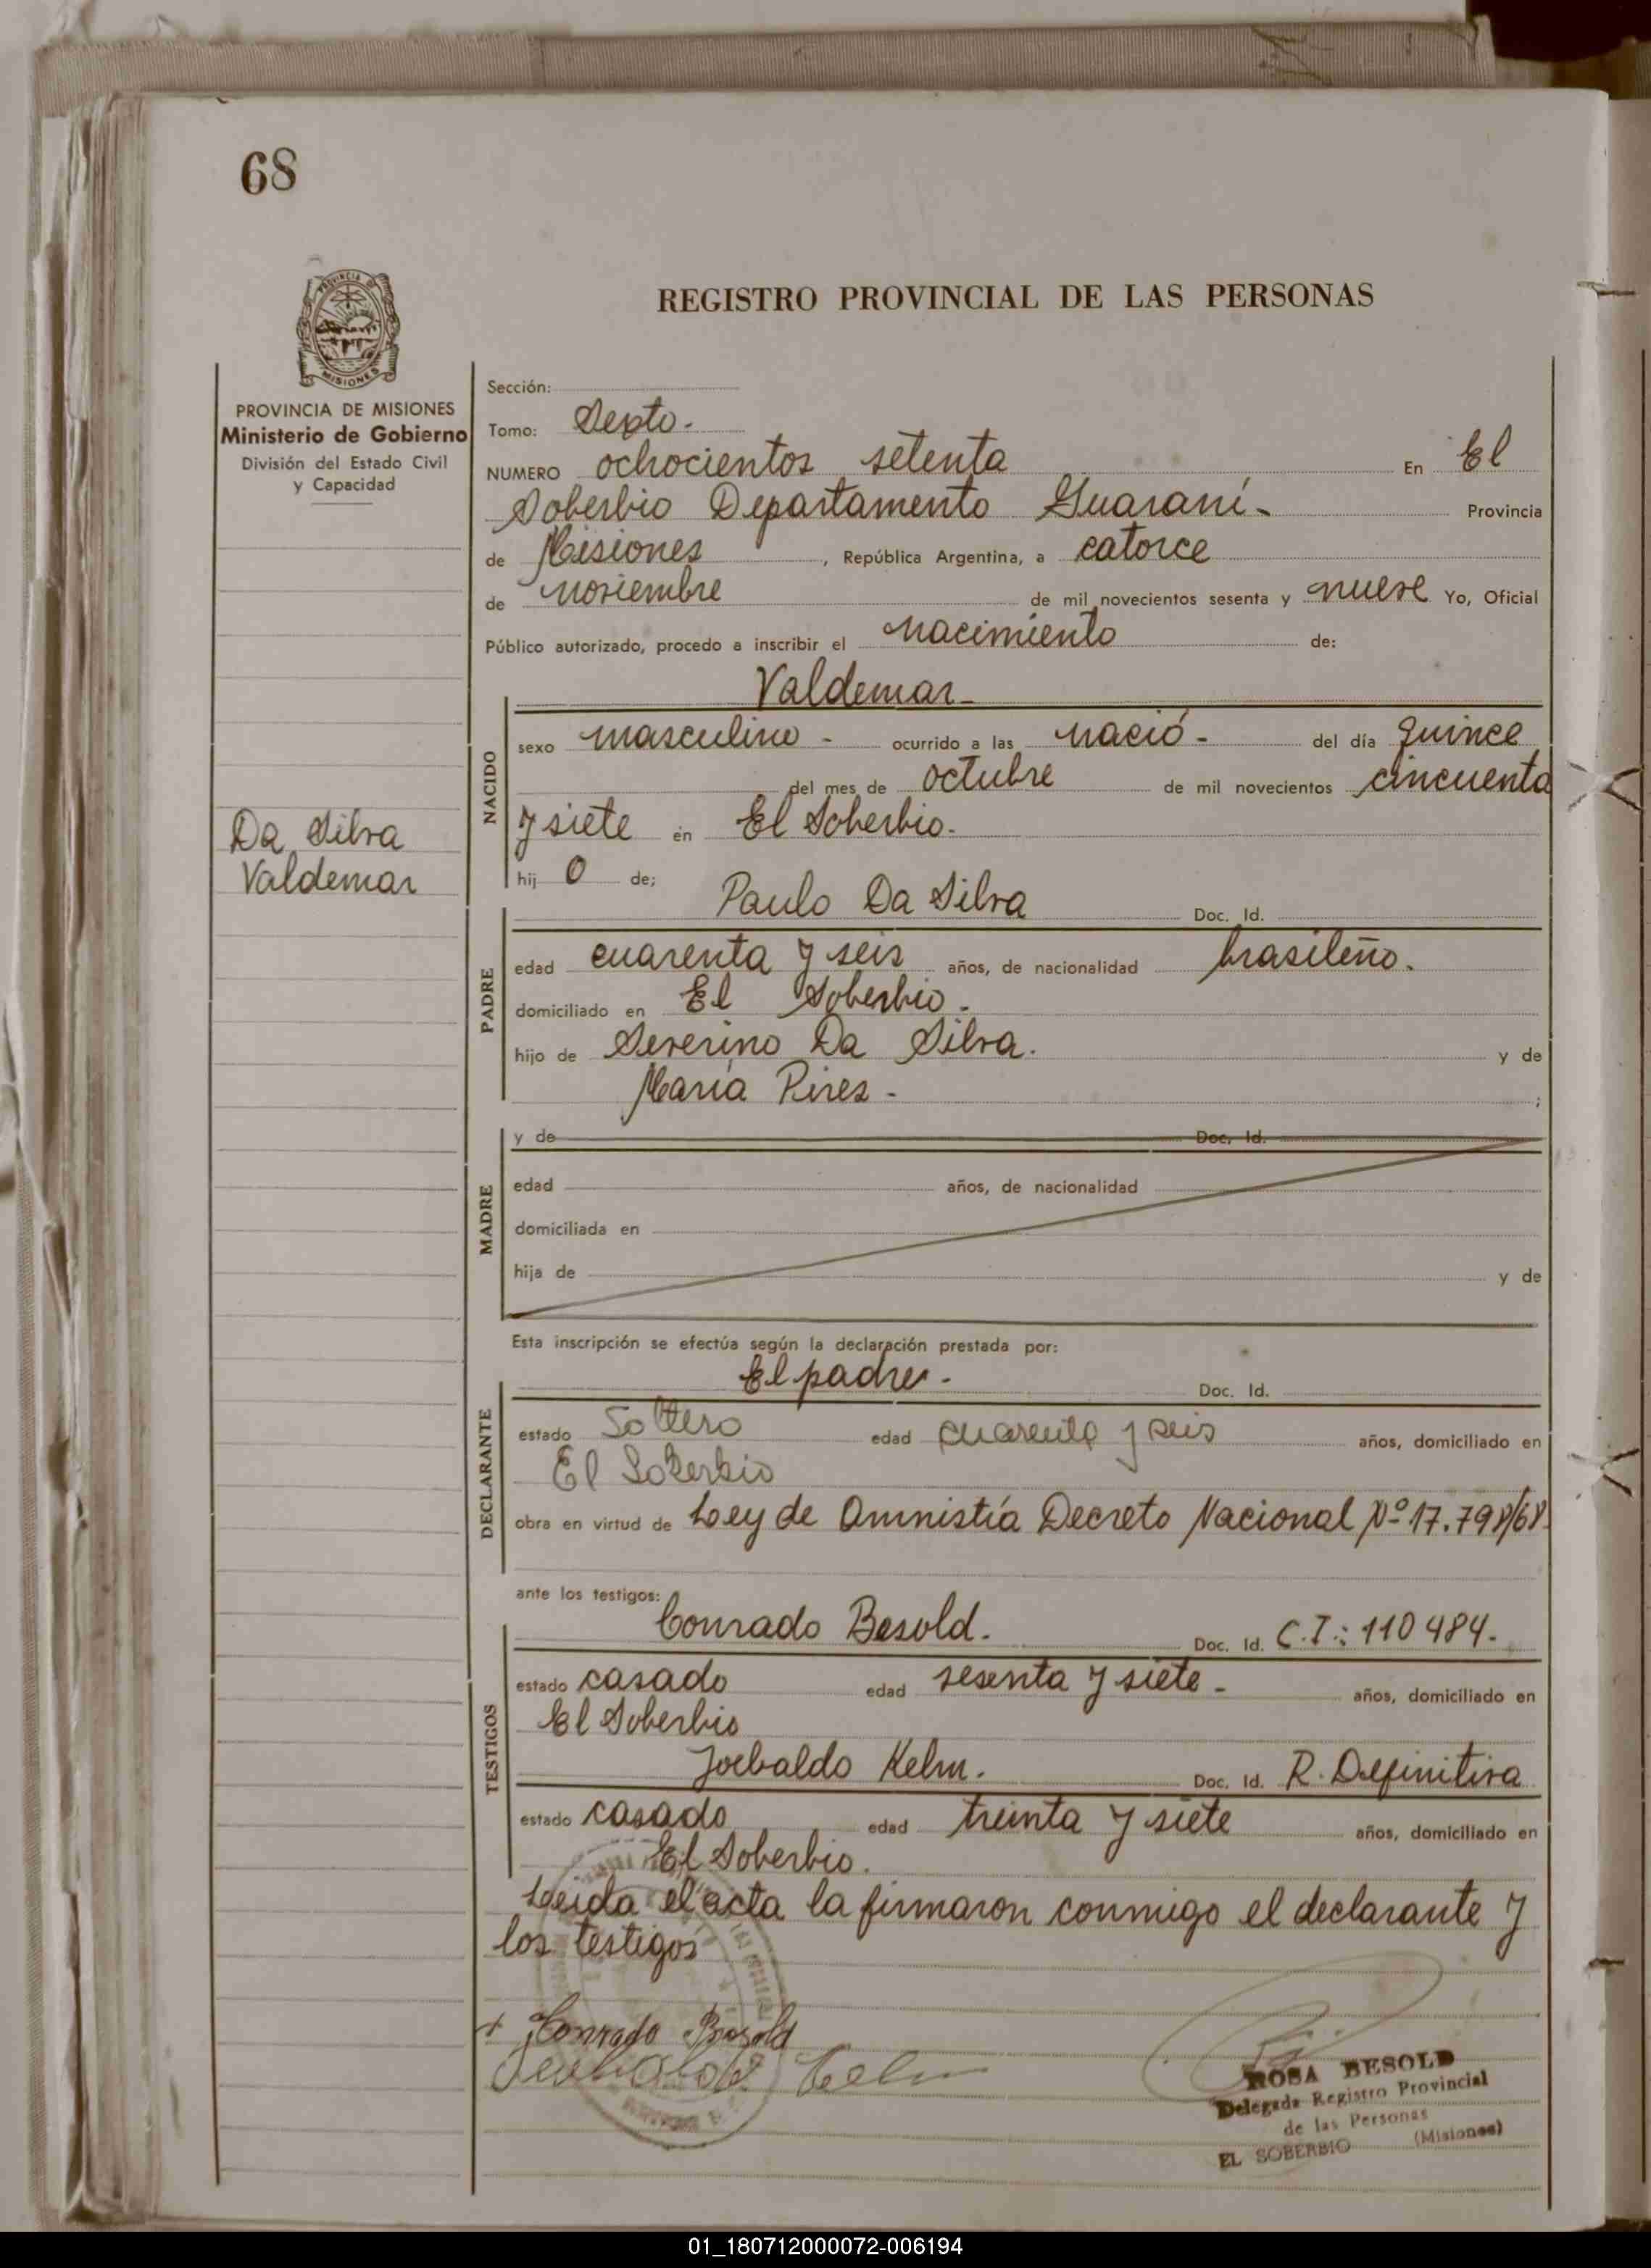 68
PROVINCIA DE
MISIONES
REGISTRO PROVINCIAL DE LAS PERSONAS
PROVINCIA DE MISIONES
Ministerio de Gobierno
División del Estado Civil
y Capacidad
Da Silva
Valdemar
Sección:
Tomo: Sexto.
NUMERO ochocientos setenta En El
Soberbio Departamento Guaraní - Provincia
de Misiones, República Argentina, a catorce
de noviembre de mil novecientos sesenta y nueve Yo, Oficial
Público autorizado, procedo a inscribir el nacimiento de:
Valdemar -
NACIDO
sexo masculino - ocurrido a las nació - del día quince
del mes de octubre de mil novecientos cincuenta
y siete en El Soberbio.
hij o de;
PADRE
Paulo Da Silva Doc. Id.
edad cuarenta y seis años, de nacionalidad brasileño.
domiciliado en El Soberbio.
hijo de Severino Da Silva. y de
María Pires - ;
MADRE
y de Doc. Id.
edad años, de nacionalidad
domiciliada en
hija de y de
Esta inscripción se efectúa según la declaración prestada por:
DECLARANTE
El padre. Doc. Id.
estado Soltero edad cuarenta y seis años, domiciliado en
El Soberbio
obra en virtud de Ley de Amnistía Decreto Nacional Nº 17.798/68.
ante los testigos:
TESTIGOS
Conrado Besold. Doc. Id. C.I.: 110484.
estado casado edad sesenta y siete - años, domiciliado en
El Soberbio
Kelm. Doc. Id. R. Definitiva
estado casado edad treinta y siete años, domiciliado en
El Soberbio.
Leida el acta la firmaron conmigo el declarante y
los testigos
+ Conrado Besold
Kelm
ROSA BESOLD
Delegada Registro Provincial
de las Personas
EL SOBERBIO (Misiones)
01_180712000072-006194